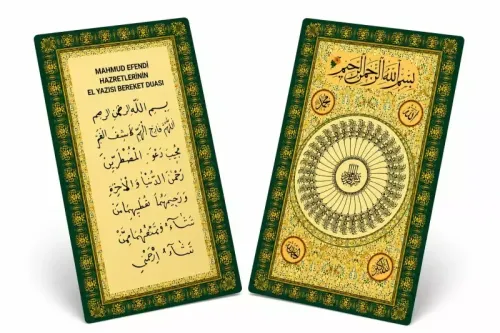 MAHMUD EFENDİ
HAZRETLERİNİN
EL YAZISI BEREKET DUASI
بسم الله الرحمن الرحيم
اللهم فارج الهم كاشف الغم
مجيب دعوة المضطرين
رحمن الدنيا والآخرة
ورحيمهما تعطيهما من
تشاء وتمنعهما ممن
تشاء ارحمني
بسم الله الرحمن الرحيم
الله
محمد